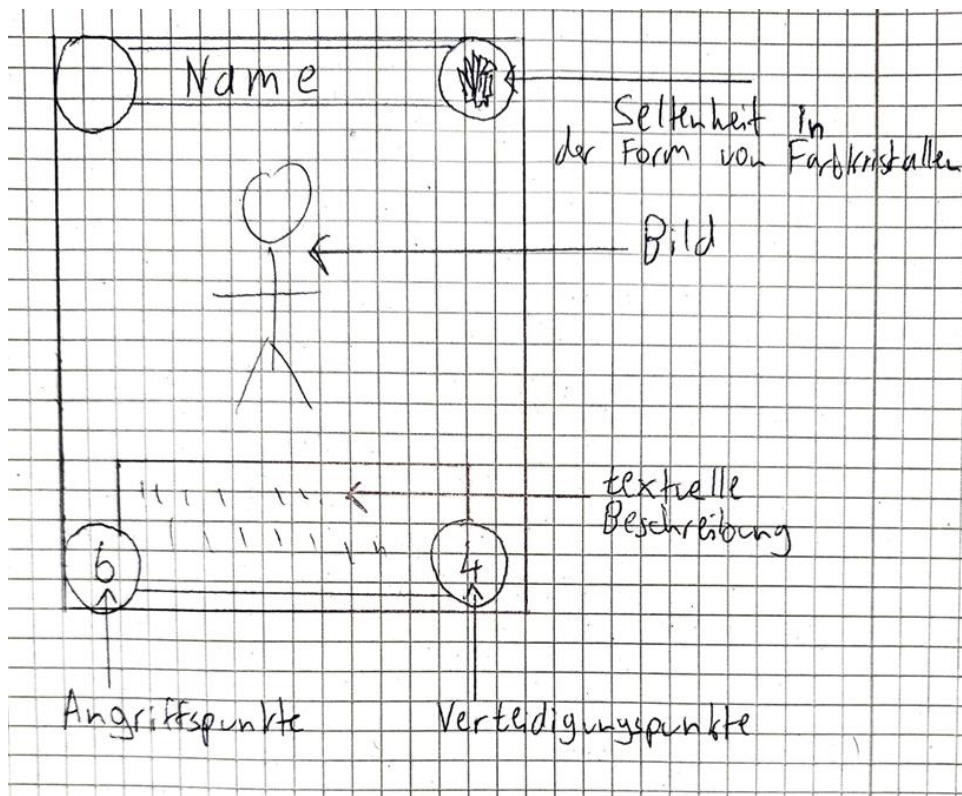 Name
Seltenheit in
der Form von Farbkristallen
Bild
textuelle
Beschreibung
6
4
Angriffspunkte
Verteidigungspunkte